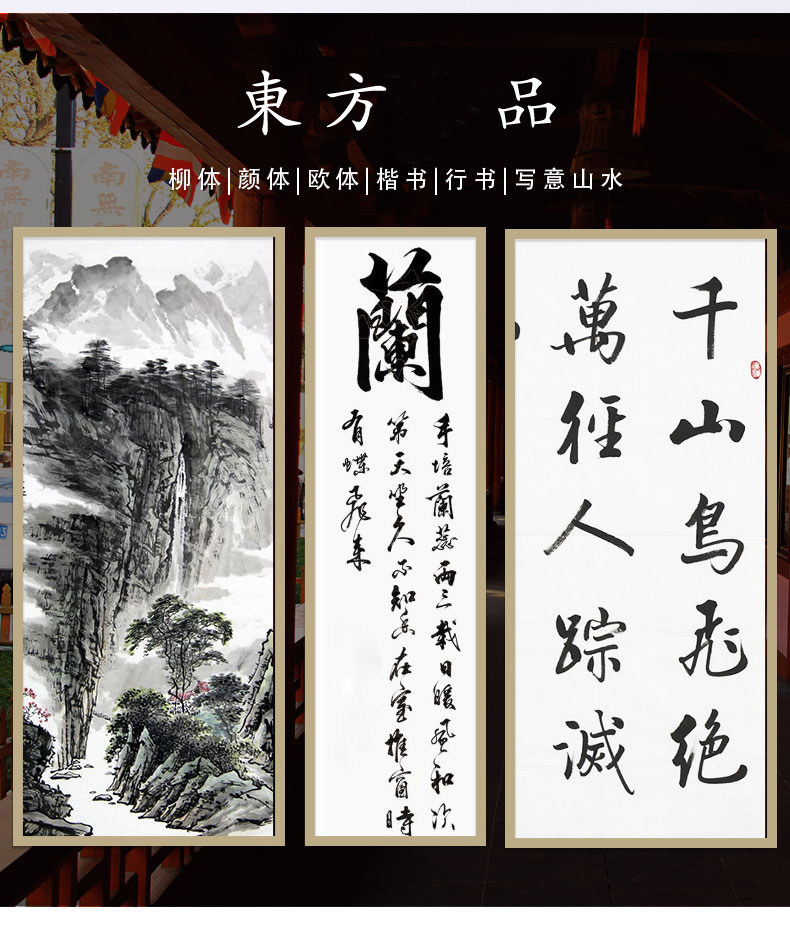 東方 品
柳体|颜体|欧体|楷书|行书|写意山水
南無觀
南無
蘭
手培蘭蕊兩三載日暖風和次
第天坐久不知香在室推窗時
有蝶飛来
千山鳥飛绝
萬徑人踪滅